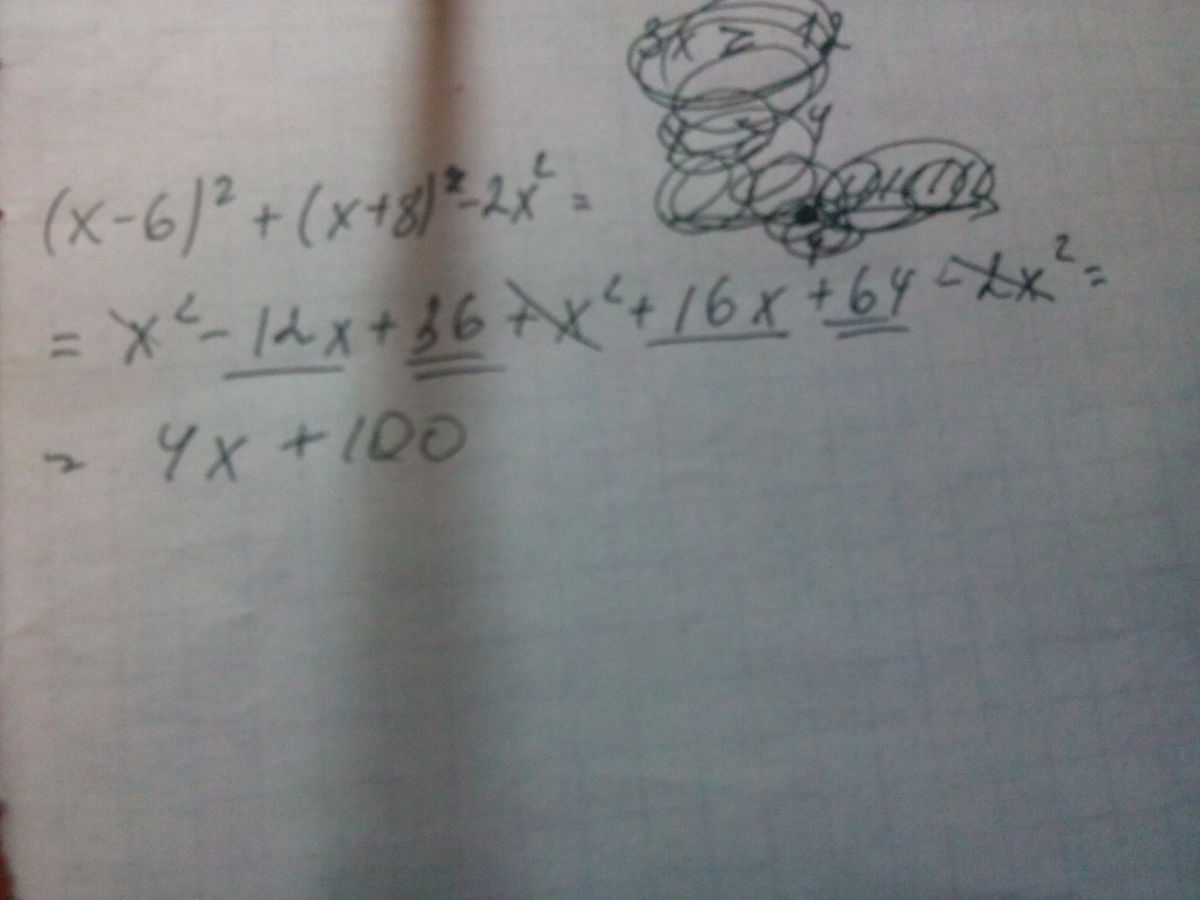 3x = 12
(x-6)² + (x+8)² - 2x² =
= x² - 12x + 36 + x² + 16x + 64 - 2x² =
= 4x + 100